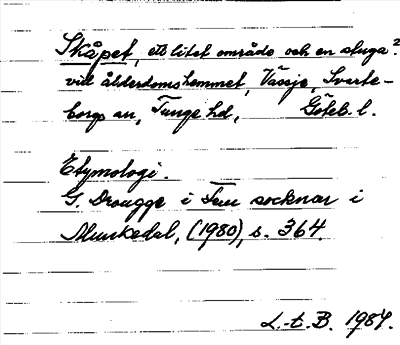 Skåpet, ett litet område och en stuga?
vid ålderdomshemmet, Vässje, Svarte-
borgs sn, Tunge hd, Göteb. l.
Etymologi.
G. Drougge i Fem socknar i
Munkedal, (1980), s. 364.
L.-t. B. 1984.